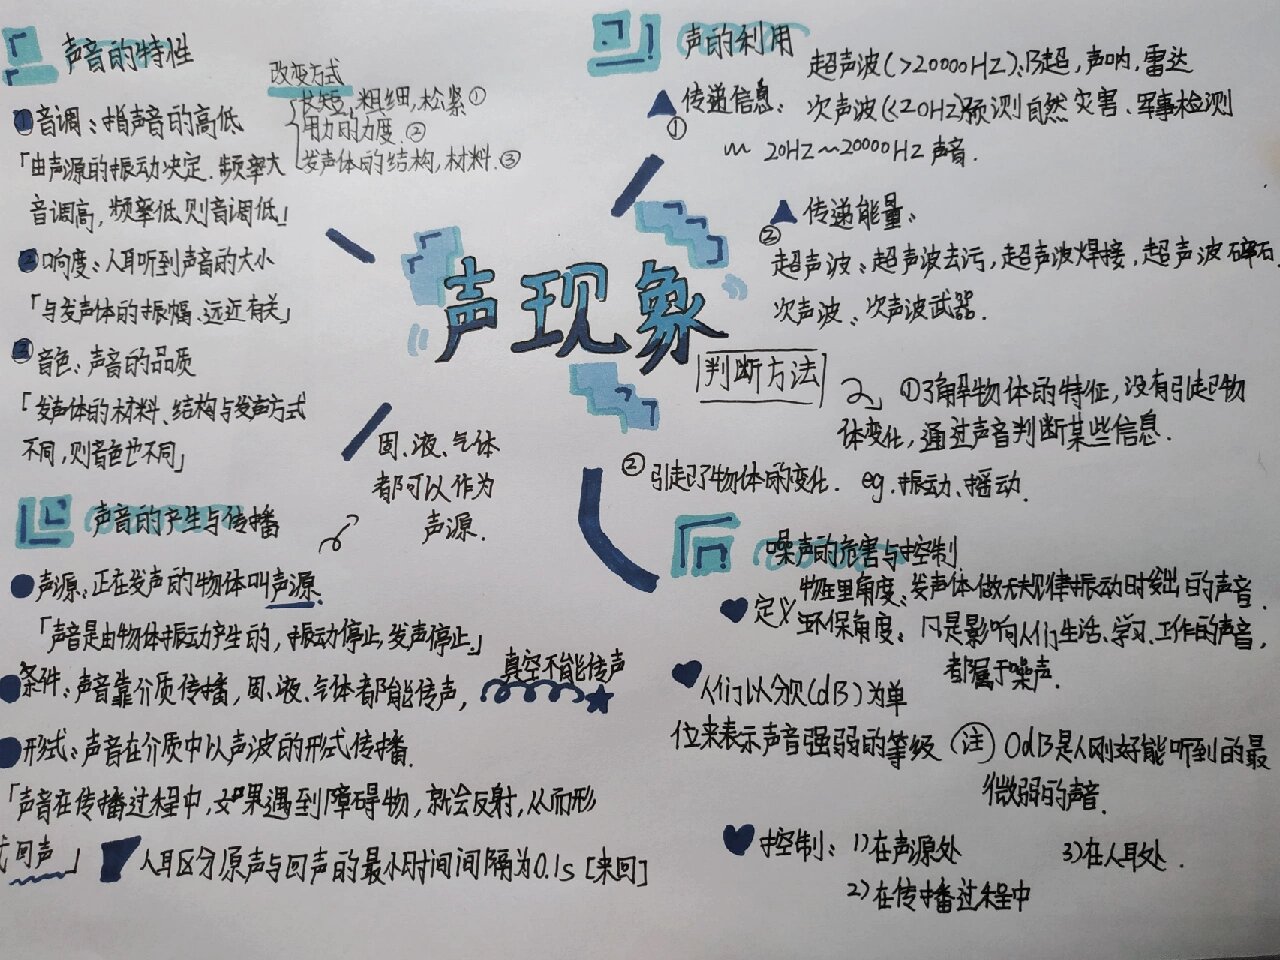 声音的特性
改变方式
长短,粗细,松紧①
用力的力度.②
发声体的结构,材料.③
①音调:指声音的高低
「由声源的振动决定.频率大
音调高,频率低则音调低」
②响度:人耳听到声音的大小
「与发声体的振幅、远近有关」
③音色:声音的品质
「发声体的材料、结构与发声方式
不同,则音色也不同」
声音的产生与传播
固、液、气体
都可以作为
声源.
声源:正在发声的物体叫声源.
「声音是由物体振动产生的,振动停止,发声停止.」
条件:声音靠介质传播,固、液、气体都能传声,
真空不能传声
形式:声音在介质中以声波的形式传播.
「声音在传播过程中,如果遇到障碍物,就会反射,从而形
式回声」
人耳区分原声与回声的最小时间间隔为0.1s[来回]
声现象
声的利用
①传递信息:
超声波(>20000HZ):B超,声呐,雷达
次声波(<20HZ)预测自然灾害、军事检测
20HZ~20000HZ声音.
②传递能量:
超声波:超声波去污,超声波焊接,超声波碎石.
次声波:次声波武器.
判断方法
①了解物体的特征,没有引起物
体变化,通过声音判断某些信息.
②引起了物体的变化. eg.振动、摇动.
噪声的危害与控制
定义
物理角度:发声体做无规律振动时发出的声音.
环保角度:凡是影响人们生活、学习、工作的声音,
都属于噪声.
人们以分贝(dB)为单
位来表示声音强弱的等级
(注)0dB是人刚好能听到的最
微弱的声音.
控制:1)在声源处
2)在传播过程中
3)在人耳处.